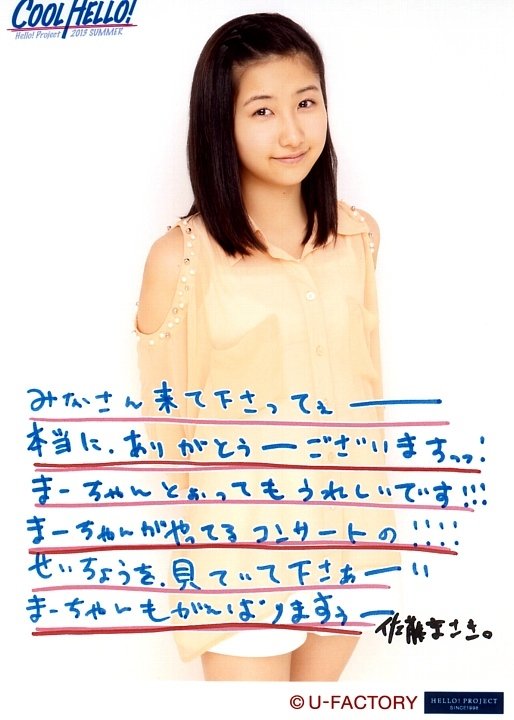 COOL HELLO!
Hello! Project 2013 SUMMER
みなさん来て下さってぇー
本当に、ありがとうーございますっっ!
まーちゃんとぉってもうれしいです!!!
まーちゃんがやってるコンサートの!!!!
せいちょうを、見ていて下さぁーい
まーちゃんもがんばりますぅー
佐藤まさき。
©U-FACTORY
HELLO! PROJECT
SINCE1998